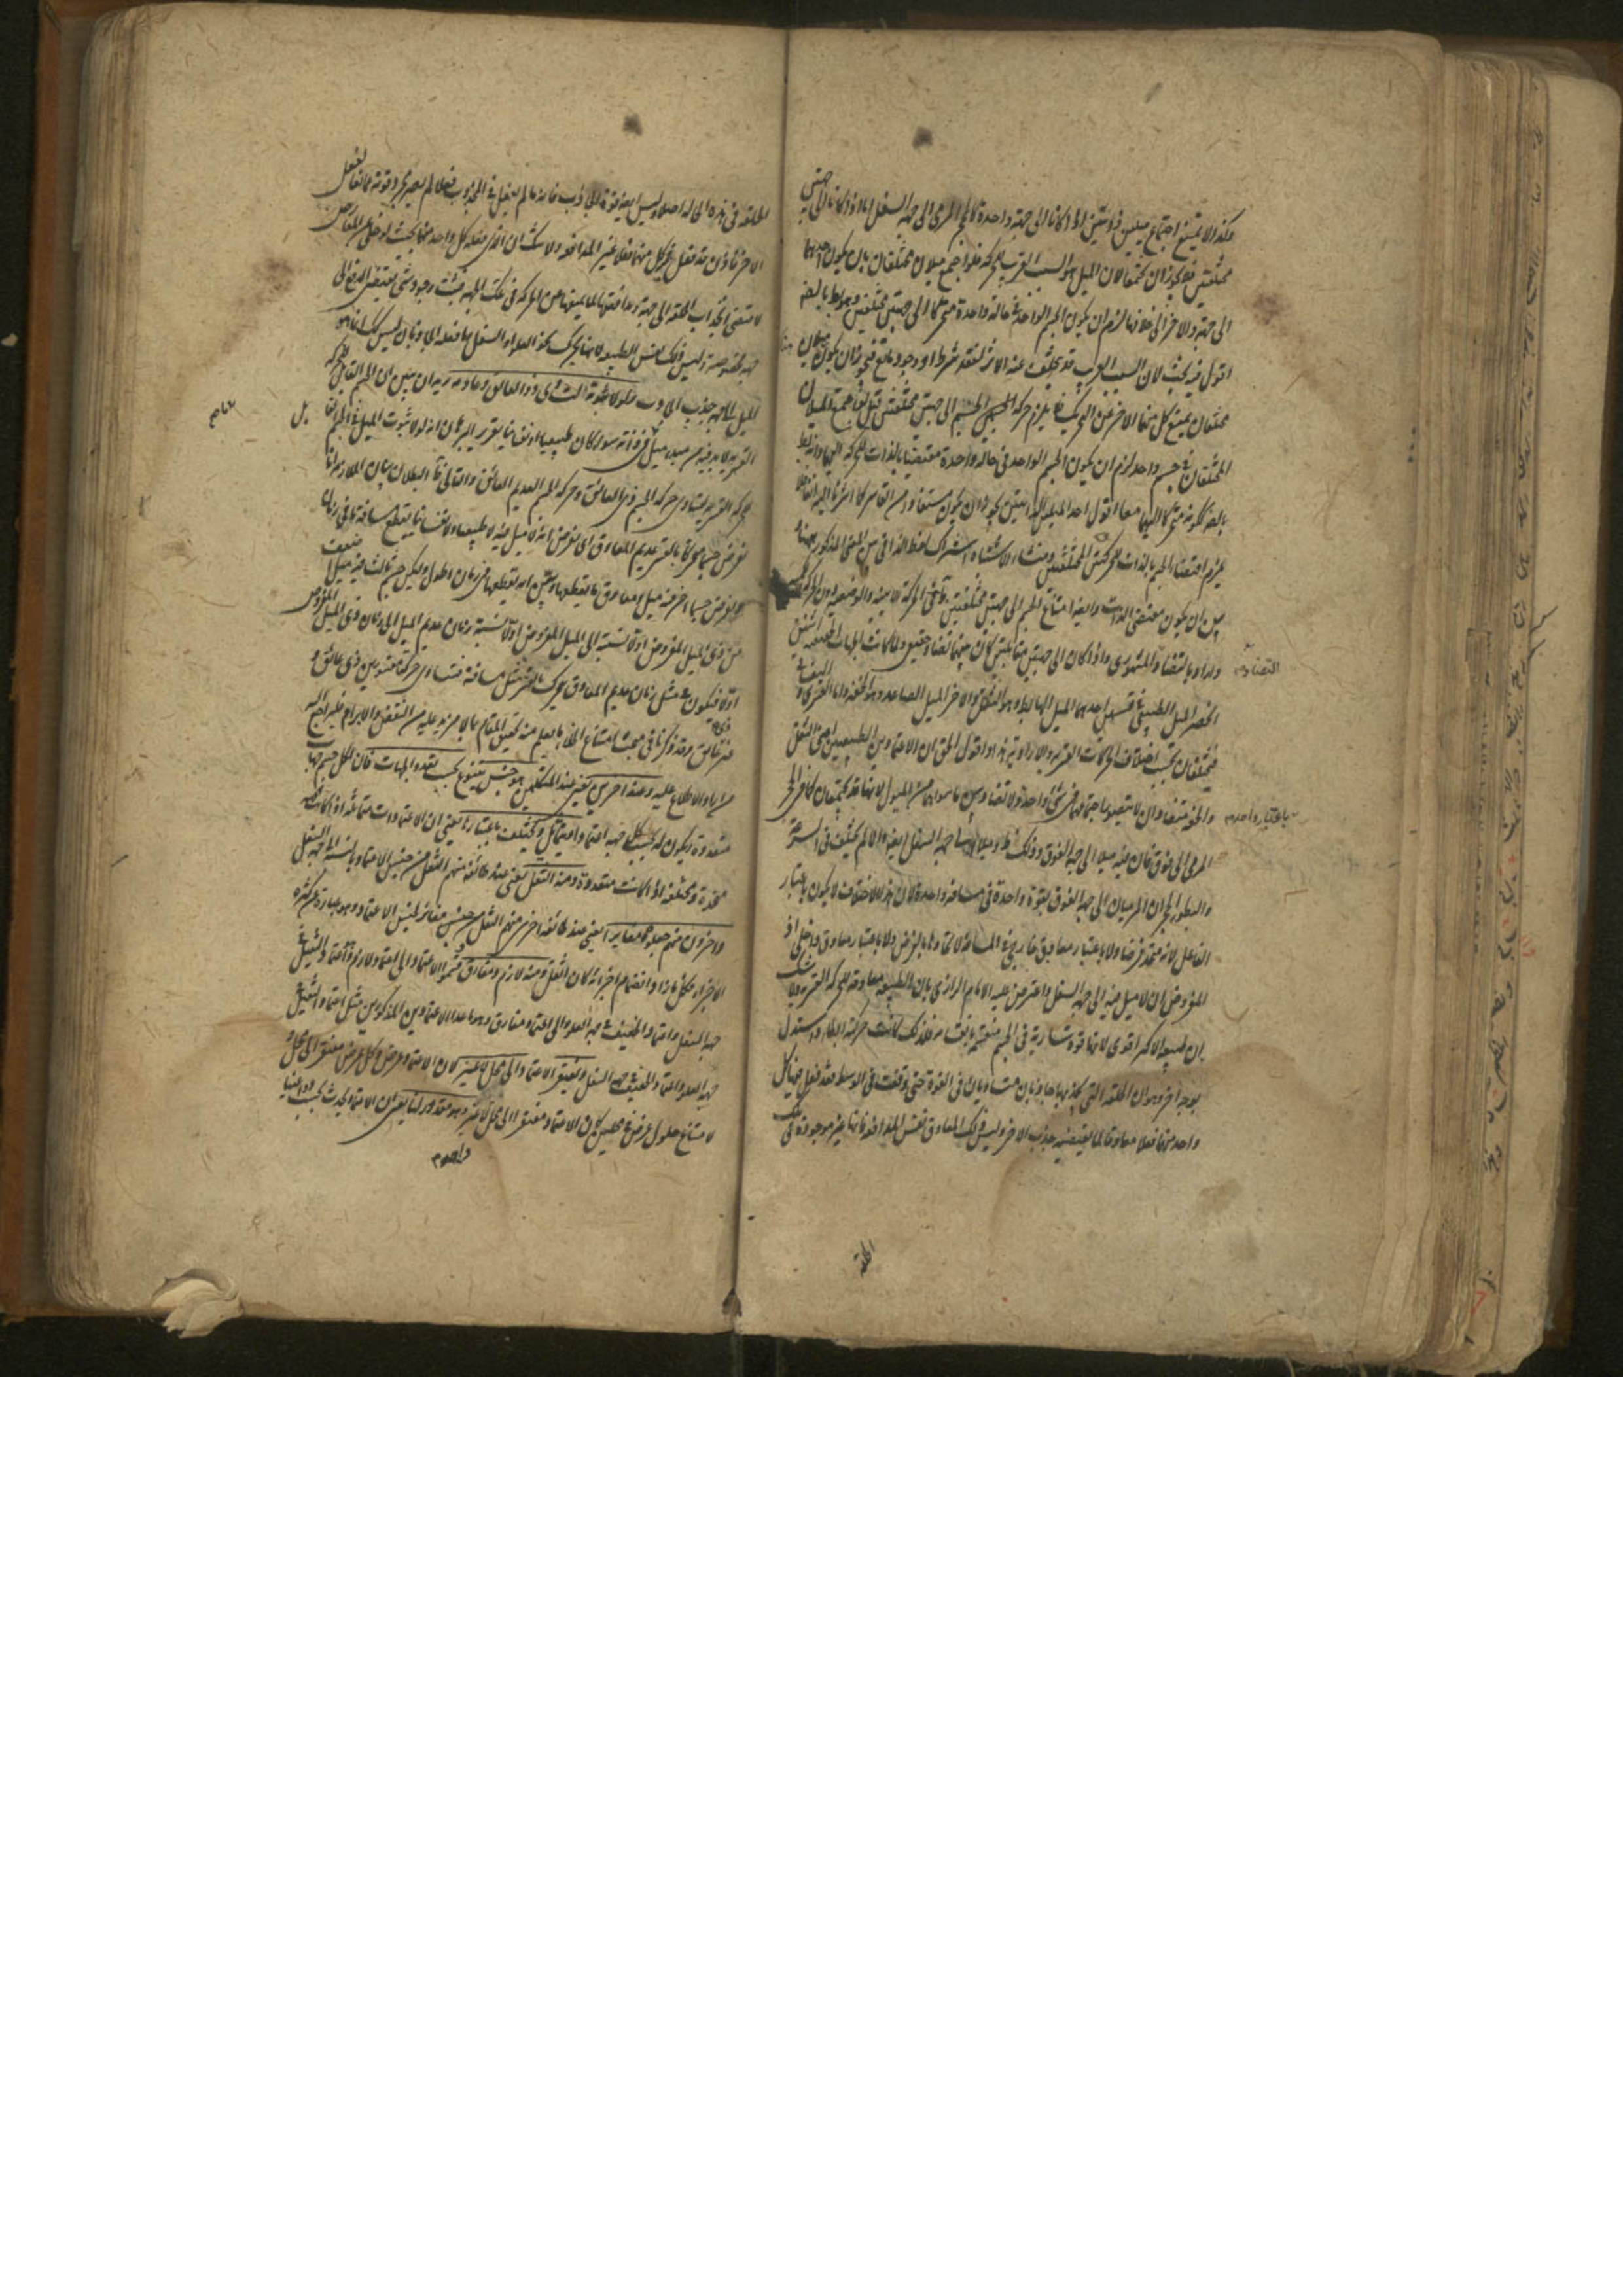 هكذا لا يمتنع اجتماع ميلين ذاتيين اذا كانا الى جهة واحدة كالحجر المرمى الى جهة السفل اما اذا كانا الى جهتين
مختلفتين فلا يجوز ان يجتمعا لان الميل هو السبب القريب للحركة فلو اجتمع ميلان مختلفان بان يكون احدهما
الى جهة والاخر الى خلافها لزم ان يكون الجسم الواحد في حالة واحدة متحركا الى جهتين مختلفتين وهو بط بالضرورة
اقول فيه بحث لان السبب القريب قد يتخلف عنه الاثر لفقد شرط او وجود مانع فيجوز ان يكون ميلان
مختلفان يمنع كل منهما الاخر عن التحريك فلا يلزم حركة الجسم الى جهتين مختلفتين قيل لو اجتمع الميلان
المختلفان في جسم واحد لزم ان يكون الجسم الواحد في حالة واحدة مقتضيا بالذات للحركة اليهما وانه بط
بالضرورة ككونه متحركا اليهما معا اقول احد الميلين الذاتيين يجوز ان يكون مستفادا من القاسر كما اشرنا اليه انفا فلا
يلزم اقتضاء الجسم بالذات للحركتين المختلفتين ومنشاء الاشتباه اشتراك لفظ الذاتي بين المعنى المذكور ههنا و
بين ان يكون مقتضى الذات وايضا امتناع الجسم الى جهتين مختلفتين يأتي الحركة الاينية والوضعية دون
وارادوا بالتضاد المشهوري واذا كان الى جهتين متقابلتين كان بينهما تضاد حقيقي ولما كانت الجهات الطبيعية اثنتين
انحصر الميل الطبيعي في قسمين احدهما الميل الهابط وهو الثقل والاخر الميل الصاعد وهو الخفة واما القسري و
فيختلفان بحسب اختلاف الحركات القسرية والارادية ثم انه اراد اقول الحق ان الاعتمادين الطبيعيين اعني الثقل
والخفة متضادان لا يتصور اجتماعهما في شئ واحد ولا تضاد بين ما سواهما من الميول لانها قد يجتمعان كما في الحجر
المرمى الى فوق فان فيه ميلا الى جهة الفوق وذلك ظ وميلا الى جهة السفل ايضا والا لم يختلف في السرعة
والبطؤ الحجران المرميان الى جهة الفوق بقوة واحدة في مسافة واحدة لان هذا الاختلاف لا يكون باعتبار
الفاعل لانه متحد فرضا ولا باعتبار معاوق خارجي في المسافة لاتحادها بالفرض ولا باعتبار معاوق داخلي اذ
المفروض ان لا ميل فيه الى جهة السفل واعترض عليه الامام الرازي بان الطبيعة معاوقة للحركة القسرية ولا شك
ان طبيعة الاكبر اقوى لانها قوة سارية في الجسم منقسمة بانقسامه فلذلك كانت حركته ابطاء واستدل
بوجه اخر وهو ان الحلقة التي يجذبها جاذبان متساويان في القوة حتى وقفت في الوسط فقد فعل فيها كل
واحد منهما فعلا معاوقا لما يقتضيه جذب الاخر وليس ذلك المعاوق نفس المدافعة فانها غير موجودة في تلك
الحلقة
التضاد
باعتبار واحد
الحلقة في هذه الحالة اصلا وليس ايضا قوة الجاذب فانه ما لم يفعل في المجذوب فعلا لم يصر مجرد قوته عائقا لفعل
الاخر فاذن قد فعل فيها كل منهما فعلا غير المدافعة ولا شك ان الذي فعله كل واحد منهما بحيث لو خلى عن المعارض
لاقتضى انجذاب الحلقة الى جهة ومدافعتها لما يمنعها من الحركة في تلك الجهة فثبت وجود شئ يقتضي الدفع الى
جهة مخصوصة وليس ذلك نفس الطبيعة لانها تحرك نحو العلو او السفل وما فعله الجاذبان ليس كذلك فاذن هو
الميل الى جهة جذب الجاذب ولولا ثبوته لتساوى ذو العائق وعادمه يريد ان يبين ان الجسم القابل للحركة
القسرية لابد فيه من مبدء ميل في ذاته سواء كان طبيعيا او نفسانيا تقرير البرهان انه لولا ثبوت الميل في الجسم القابل
للحركة القسرية لتساوى حركة الجسم ذي العائق وحركة الجسم العديم العائق والتالي ظ البطلان بيان الملازمة انا
نفرض جسما متحركا بالقسر عديم المعاوق اي نفرض انه لا ميل فيه لا طبيعيا ولا نفسانيا يقطع مسافة ما في زمان
ونفرض جسما اخر فيه ميل ومعاوق ما يقطعها وبين انه يقطعها في زمان اطول وليكن جسم ثالث فيه ميل اضعف
من ذي الميل المفروض اولا نسبته الى الميل المفروض اولا نسبة زمان عديم الميل الى زمان ذي الميل المفروض
اولا فيكون في مثل زمان عديم المعاوق يتحرك بالقسر مثل مسافته فتساوى حركتا مقسورين ذي عائق و
غير ذي عائق وقد ذكرنا في مبحث امتناع الخلاء ما يعلم منه تحقيق المقام بما لا مزيد عليه من النقض والابرام فليراجع اليه
من اراد الاطلاع عليه وعند اخرين يعني عند المتكلمين هو جنس يتنوع بحسب تعدد الجهات فان لكل جسم جهات
متعددة ويكون له بحسب كل جهة اعتماد ويتماثل ويختلف باعتبارها يعني ان الاعتمادات متماثلة اذا كانت جهتها
متحدة ومختلفة اذا كانت متعددة ومنه الثقل يعني عند طائفة منهم الثقل من جنس الاعتماد بالنسبة الى جهة السفل
واخرون منهم جعلوه مغايرا يعني عند طائفة اخرى منهم الثقل من جنس مغاير لجنس الاعتماد وهو عبارة عن كثرة
الاجزاء فكل ما زاد انضمام اجزائه كان اثقل ومنه لازم ومفارق قسموا الاعتماد الى اعتماد لازم وهو اعتماد الثقيل في
جهة السفل واعتماد الخفيف في جهة العلو والى اعتماد مفارق وهو ما عدا الاعتمادين المذكورين مثل اعتماد الثقيل في
جهة العلو واعتماد الخفيف في جهة السفل ويفتقر الاعتماد الى محل لا غير لان الاعتماد عرض وكل عرض مفتقر الى محل و
لامتناع حلول عرض في محلين كان الاعتماد مفتقرا الى محل لا غير وهو مقدور لنا يعني ان الاعتماد يحدث بحسب دواعينا